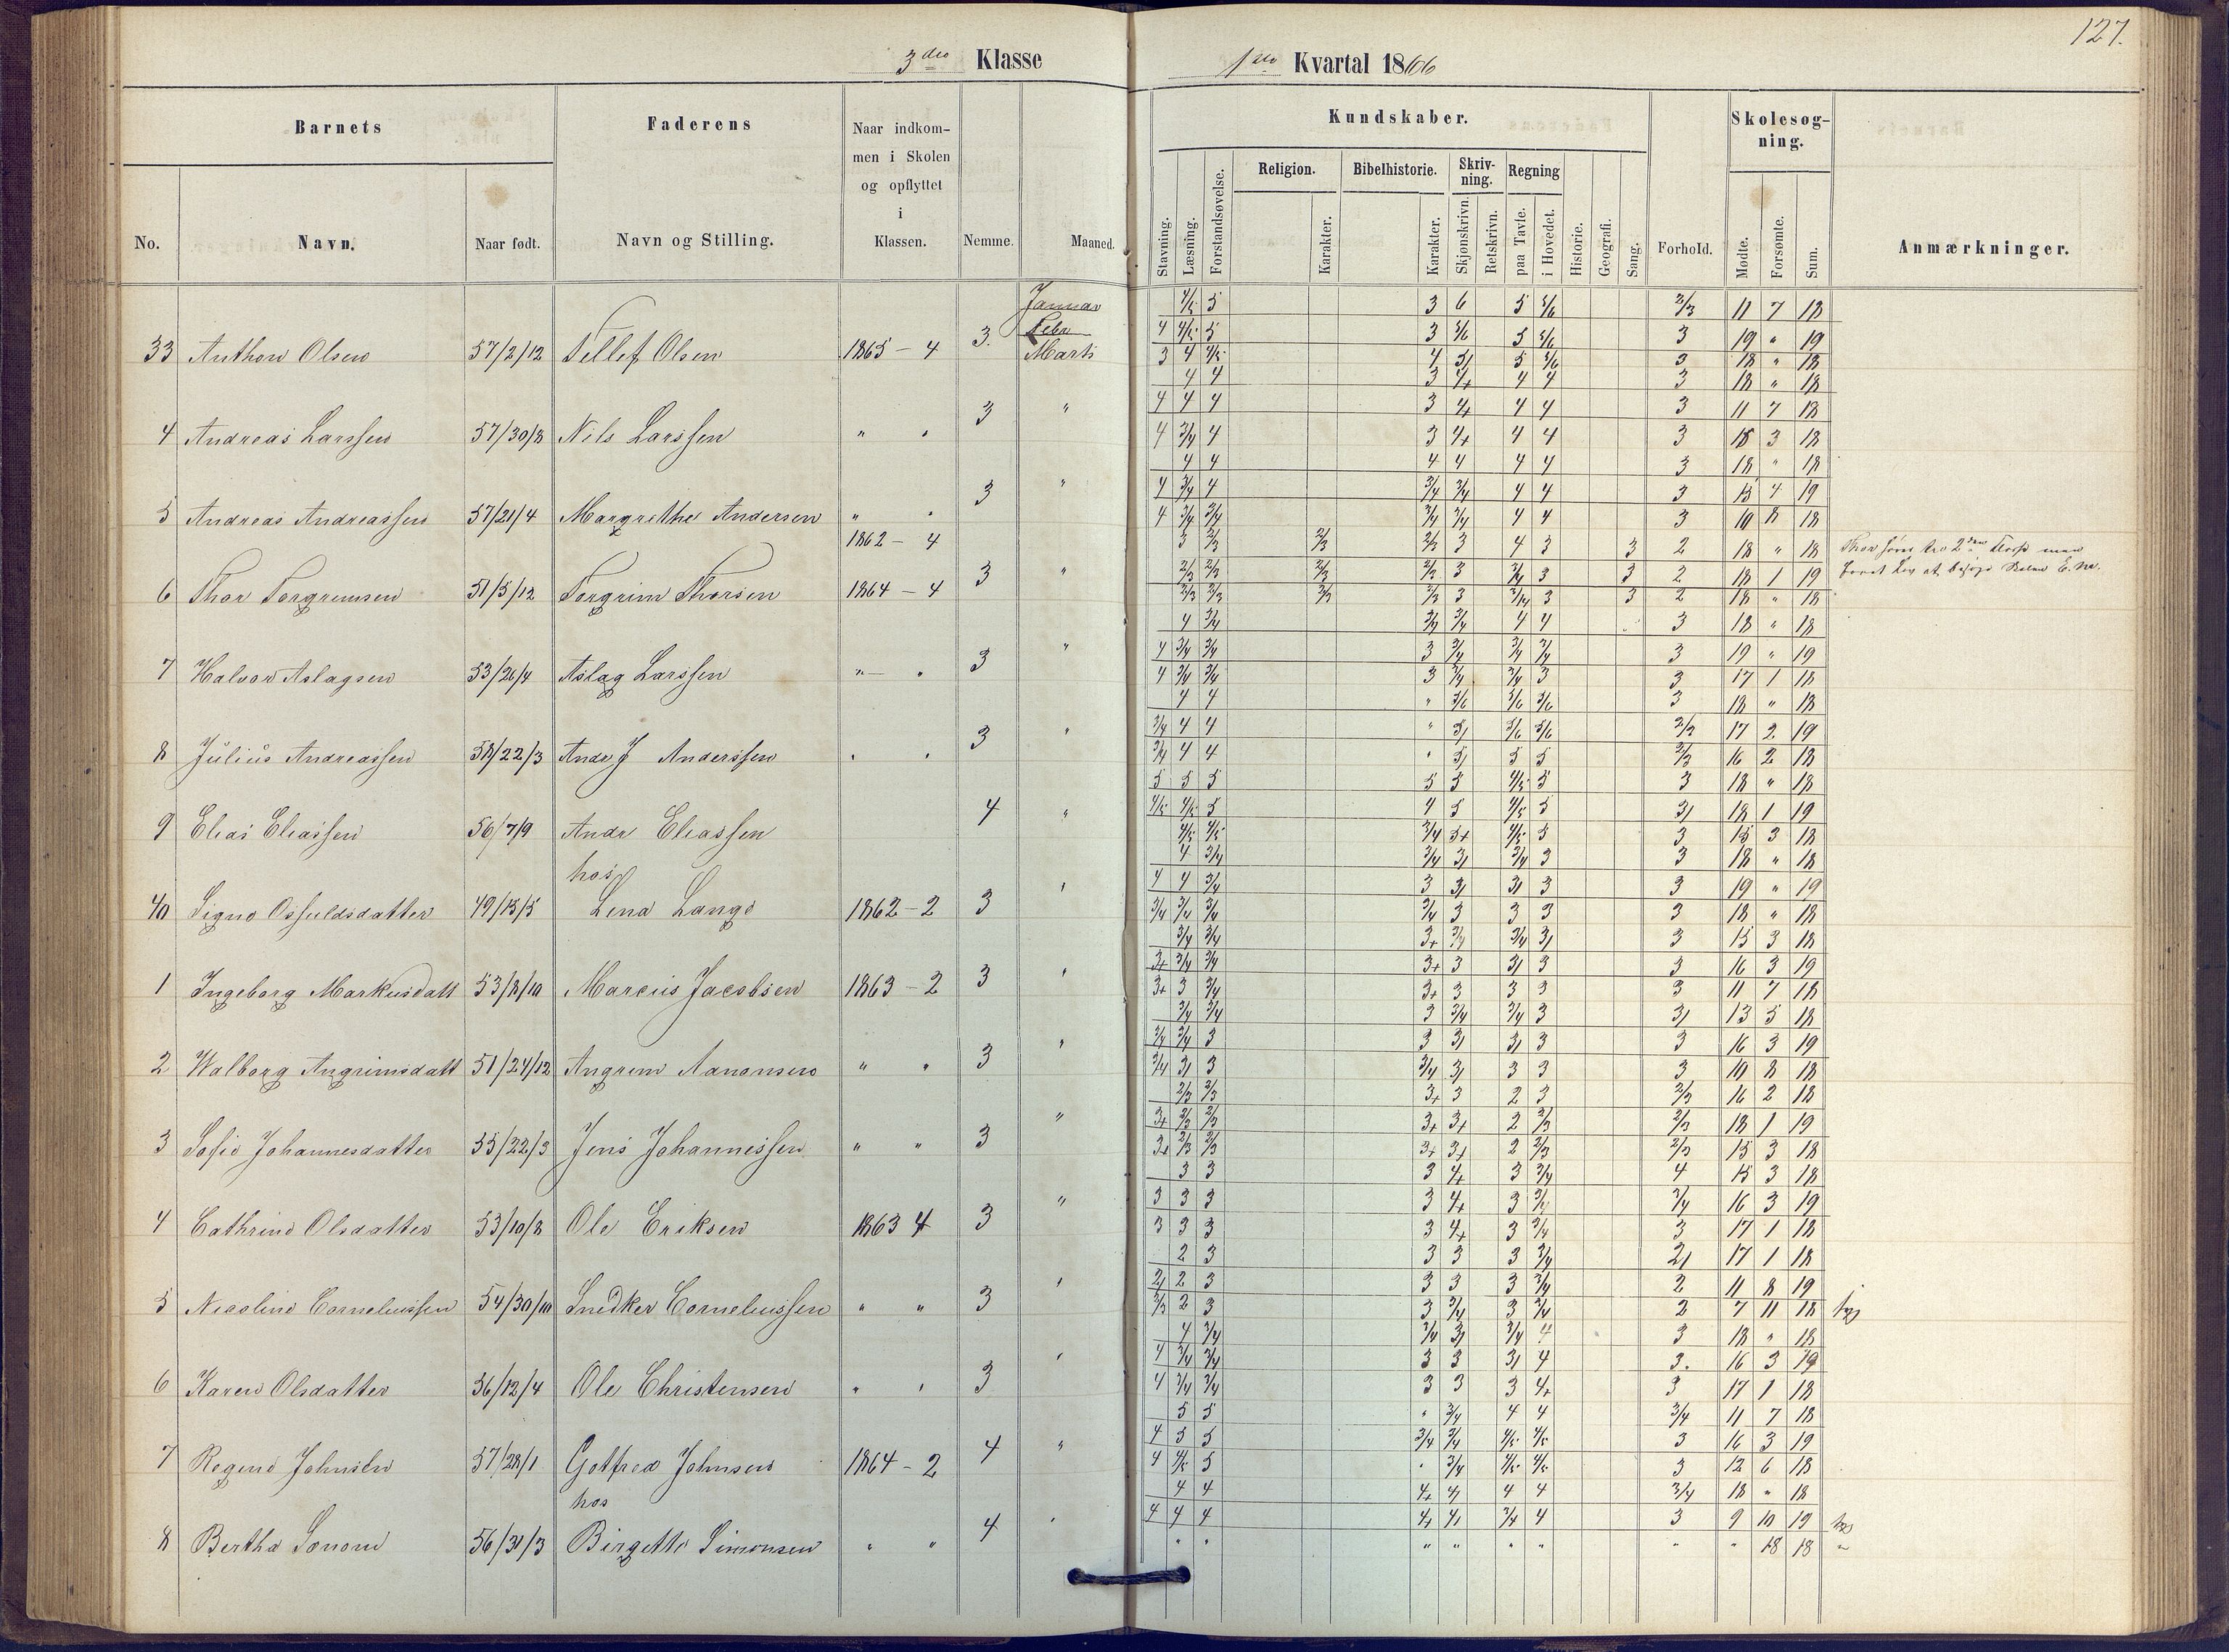 127.
3die Klasse
1ste Kvartal 1866
Barnets
Faderens
Naar indkommen i Skolen og opflyttet i Klassen.
Kundskaber.
Skolesøgning.
Religion. Bibelhistorie. Skrivning. Regning
No. Navn. Naar født. Navn og Stilling. Nemme. Maaned.
Stavning. Læsning. Forstandsøvelse. Karakter. Karakter. Skjønskrivn. Retskrivn. paa Tavle. i Hovedet. Historie. Geografi. Sang. Forhold. Mødte. Forsømte. Sum. Anmærkninger.
Januar 4/5 5 3 6 5 5/6 2/3 11 7 18
Febr 4 4/5 5 3 5/6 5 5/6 3 19 " 19
33 Anthon Olsen 57/2/12 Tellef Olsen 1865 - 4 3. Marts 3 4 4/5 4 5/ 5 5/6 3 18 " 18
4 4 3 4+ 4 4 3 18 " 18
4 4 4 3 4+ 4 4 3 11 7 18
4 Andreas Larssen 57/30/8 Nils Larssen " " 3 " 4 3/4 4 3 4+ 4 4 3 15 3 18
4 4 4 4 4 4 3 18 " 18
4 3/4 4 3/4 3/4 4 4 3 15 4 19
5 Andreas Andreassen 57/21/4 Margrethe Andersen " " 3 " 4 3/4 3/4 3/4 3/4 4 4 3 10 8 18
1862 - 4 3 2/3 2/3 2/3 3 4 3 3 2 18 " 18
2/3 2/3 2/3 2/3 3 3/4 3 3 2 18 1 19
6 Thor Torgrimsen 51/5/12 Torgrim Thorsen 1864 - 4 3 " 2/3 2/3 2/3 2/3 3 3/4 3 3 2 18 " 18
4 3/4 3/4 3/4 4 4 3 18 " 18
4 3/4 3/4 3 3/4 3/4 3/4 3 19 " 19
7 Halvor Aslagsen 53/26/4 Aslag Larssen " " 3 " 4 3/4 3/4 3 3/4 3/4 3 3 17 1 18
4 4 " 5/6 5/6 5/6 3 18 " 18
3/4 4 4 " 5/ 5/6 5/6 2/3 17 2 19
8 Julius Andreassen 58/22/3 Andr J Anderssen " " 3 " 3/4 4 4 " 5/ 5 5 2/3 16 2 18
5 5 5 5 5 4/5 5 3 18 " 18
4/5 4/5 5 4 5 4/5 5 3/ 18 1 19
9 Elias Eliassen 56/7/9 Andr Eliassen 4 " 4/5 4/5 3/4 5+ 4/5 5 3 15 3 18
hos 4 3/4 3/4 3/ 3/4 3 3 18 " 18
4 4 3/4 3 3/ 3/ 3 3 19 " 19
40 Signe Osfuldsdatter 49/13/5 Lena Lange 1862 - 2 3 " 3/4 3/4 3/4 3/4 3 3 3 3 18 " 18
3/4 3/4 3+ 3/4 3/4 3/ 3 15 3 18
3+ 3/4 3/4 3+ 3 3/ 3 3 16 3 19
1 Ingeborg Markusdatt 53/8/10 Marcus Jacobsen 1863 - 2 3 " 3+ 3 3/4 3+ 3 3 3 3 11 7 18
3/4 3/4 3 3/4 3/4 3 3/ 13 5 18
3/4 3/4 3 3 3/ 3/ 3 3 16 3 19
2 Walborg Angrimsdatt 51/24/12 Angrim Aanonsen " " 3 " 3/4 3/ 3 3/4 3/ 3 3 3 10 8 18
2/3 2/3 3+ 3 2 3 2/3 16 2 18
3+ 2/3 2/3 3+ 3+ 2 2/3 2/3 18 1 19
3 Sofie Johannesdatter 55/22/3 Jens Johannessen " " 3 " 3+ 2/3 2/3 3+ 3+ 2 2/3 2/3 15 3 18
3 3 3 4+ 3 3/4 4 15 3 18
3 3 3 3 4+ 3 3/4 3/4 16 3 19
4 Cathrine Olsdatter 53/10/8 Ole Eriksen 1863 4 3 " 3 3 3 3 4+ 3 3/4 3 17 1 18
2 3 3 3 3 3/4 2/ 17 1 18
2/ 2 3 3 3 3 3/4 2 11 8 19
5 Nicoline Corneliussen 54/30/10 Snedker Corneliussen " " 3 " 2/3 2 3 3 3/4 3 3/4 2 7 11 18 syg
4 3/4 3/4 3/ 3/4 4 3 18 " 18
4 3/4 3/4 3 3 3/ 4 3. 16 3 19
6 Karen Olsdatter 56/12/4 Ole Christensen " " 3 " 4 3/4 3/4 3 3 3 4+ 3 17 1 18
5 5 " 3/4 4 4 3/4 11 7 18
4 5 5 3/4 3/4 4/5 4/5 3 16 3 19
7 Regine Johnsen 57/28/1 Gotfred Johnsen 1864 - 2 4 " 4 4/5 5 " 3/4 4/5 4/5 3 12 6 18
hos 4 4 4+ 4/ 4 4 3/4 18 " 18
4 4 4 4+ 4/ 3/4 4 3 9 10 19 syg
8 Bertha 56/31/3 Birgette Simonsen " " 4 " " " " " " " " " 18 18 "